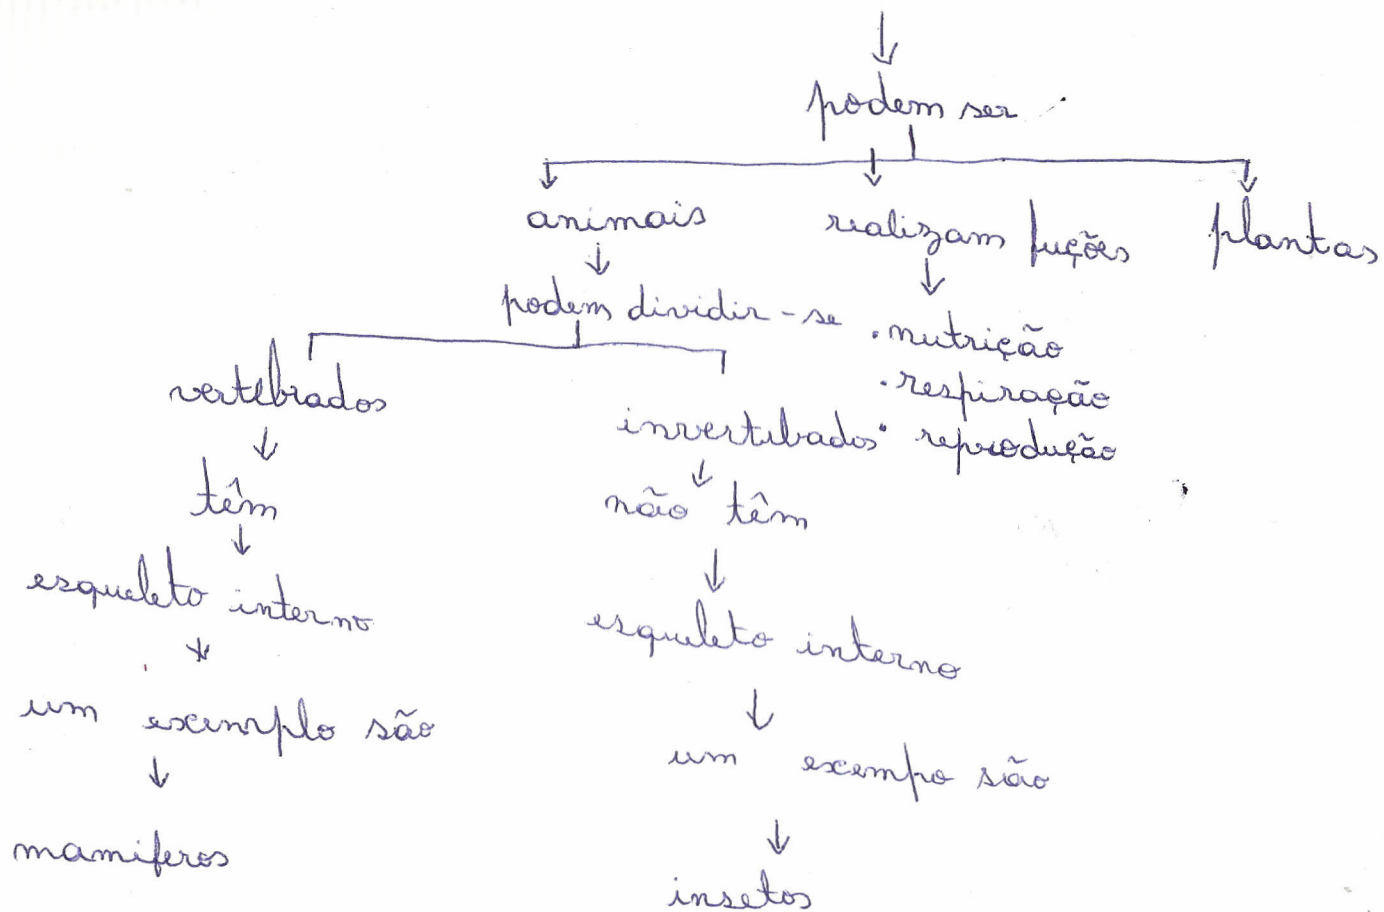 podem ser
animais realizam fuções plantas
podem dividir-se
. nutrição
. respiração
. reprodução
vertebrados
invertebados
têm
não têm
esqueleto interno
esqueleto interno
um exemplo são
um exempo são
mamiferos
insetos